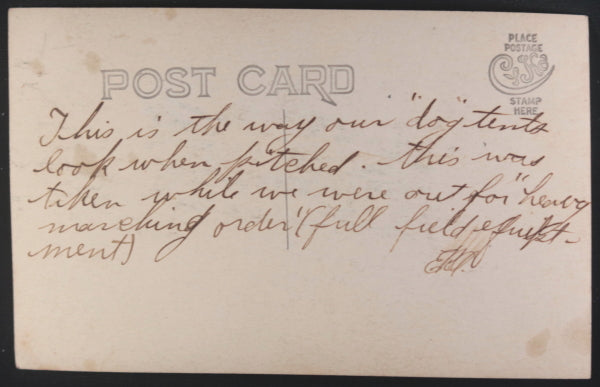 PLACE
POSTAGE
STAMP
HERE
POST CARD
This is the way our "dog" tents
look when pitched. This was
taken while we were out for "heavy
marching order" (full field equipt-
ment)